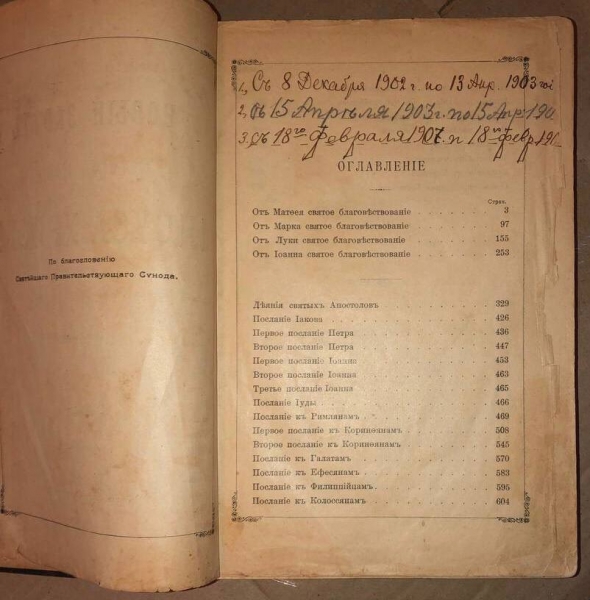 По благословенію
Святѣйшаго Правительствующаго Сѵнода.
1, Съ 8 Декабря 1902 г. по 13 Апр. 1903
2, Съ 15 Апрѣля 1903 г. по 15 Апр. 190
3. Съ 18го Февраля 1907. п 18 февр. 191
ОГЛАВЛЕНІЕ
Стран.
Отъ Матѳея святое благовѣствованіе 3
Отъ Марка святое благовѣствованіе 97
Отъ Луки святое благовѣствованіе 155
Отъ Іоанна святое благовѣствованіе 253
Дѣянія святыхъ Апостоловъ 329
Посланіе Іакова 426
Первое посланіе Петра 436
Второе посланіе Петра 447
Первое посланіе Іоанна 453
Второе посланіе Іоанна 463
Третье посланіе Іоанна 465
Посланіе Іуды 466
Посланіе къ Римлянамъ 469
Первое посланіе къ Коринѳянамъ 508
Второе посланіе къ Коринѳянамъ 545
Посланіе къ Галатамъ 570
Посланіе къ Ефесянамъ 583
Посланіе къ Филиппійцамъ 595
Посланіе къ Колоссянамъ 604